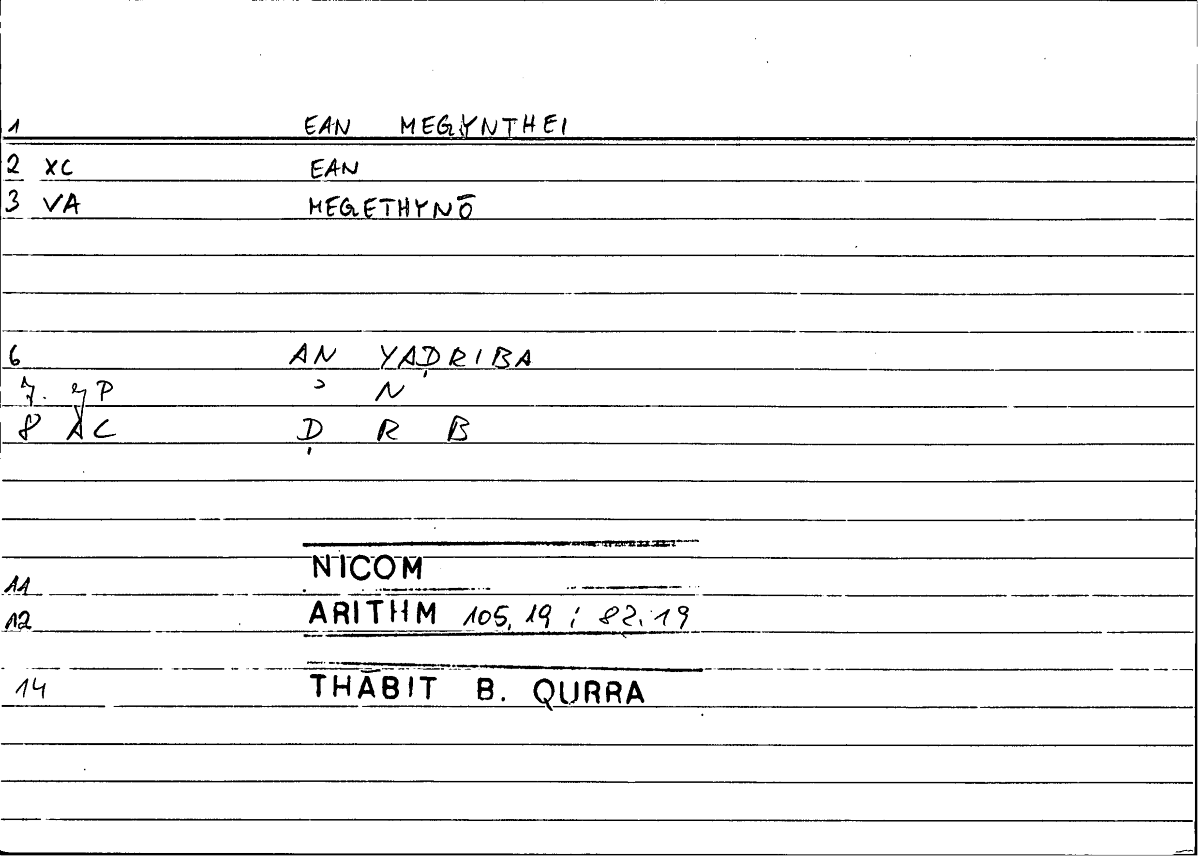 1 EAN MEGYNTHEI
2 XC EAN
3 VA MEGETHYNŌ
6 AN YAḌRIBA
7. P ʾ N
8 XC Ḍ R B
11 NICOM
12 ARITHM 105, 19 ; 82.19
14 THĀBIT B. QURRA